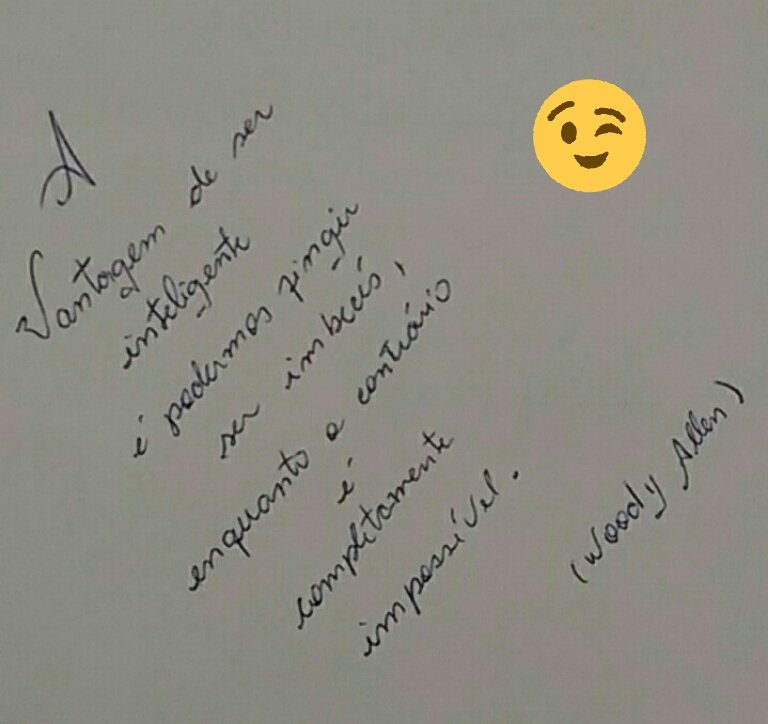 A
Vantagem de ser
inteligente
é podermos fingir
ser imbecís,
enquanto o contrário
é
completamente
impossível.
(Woody Allen)